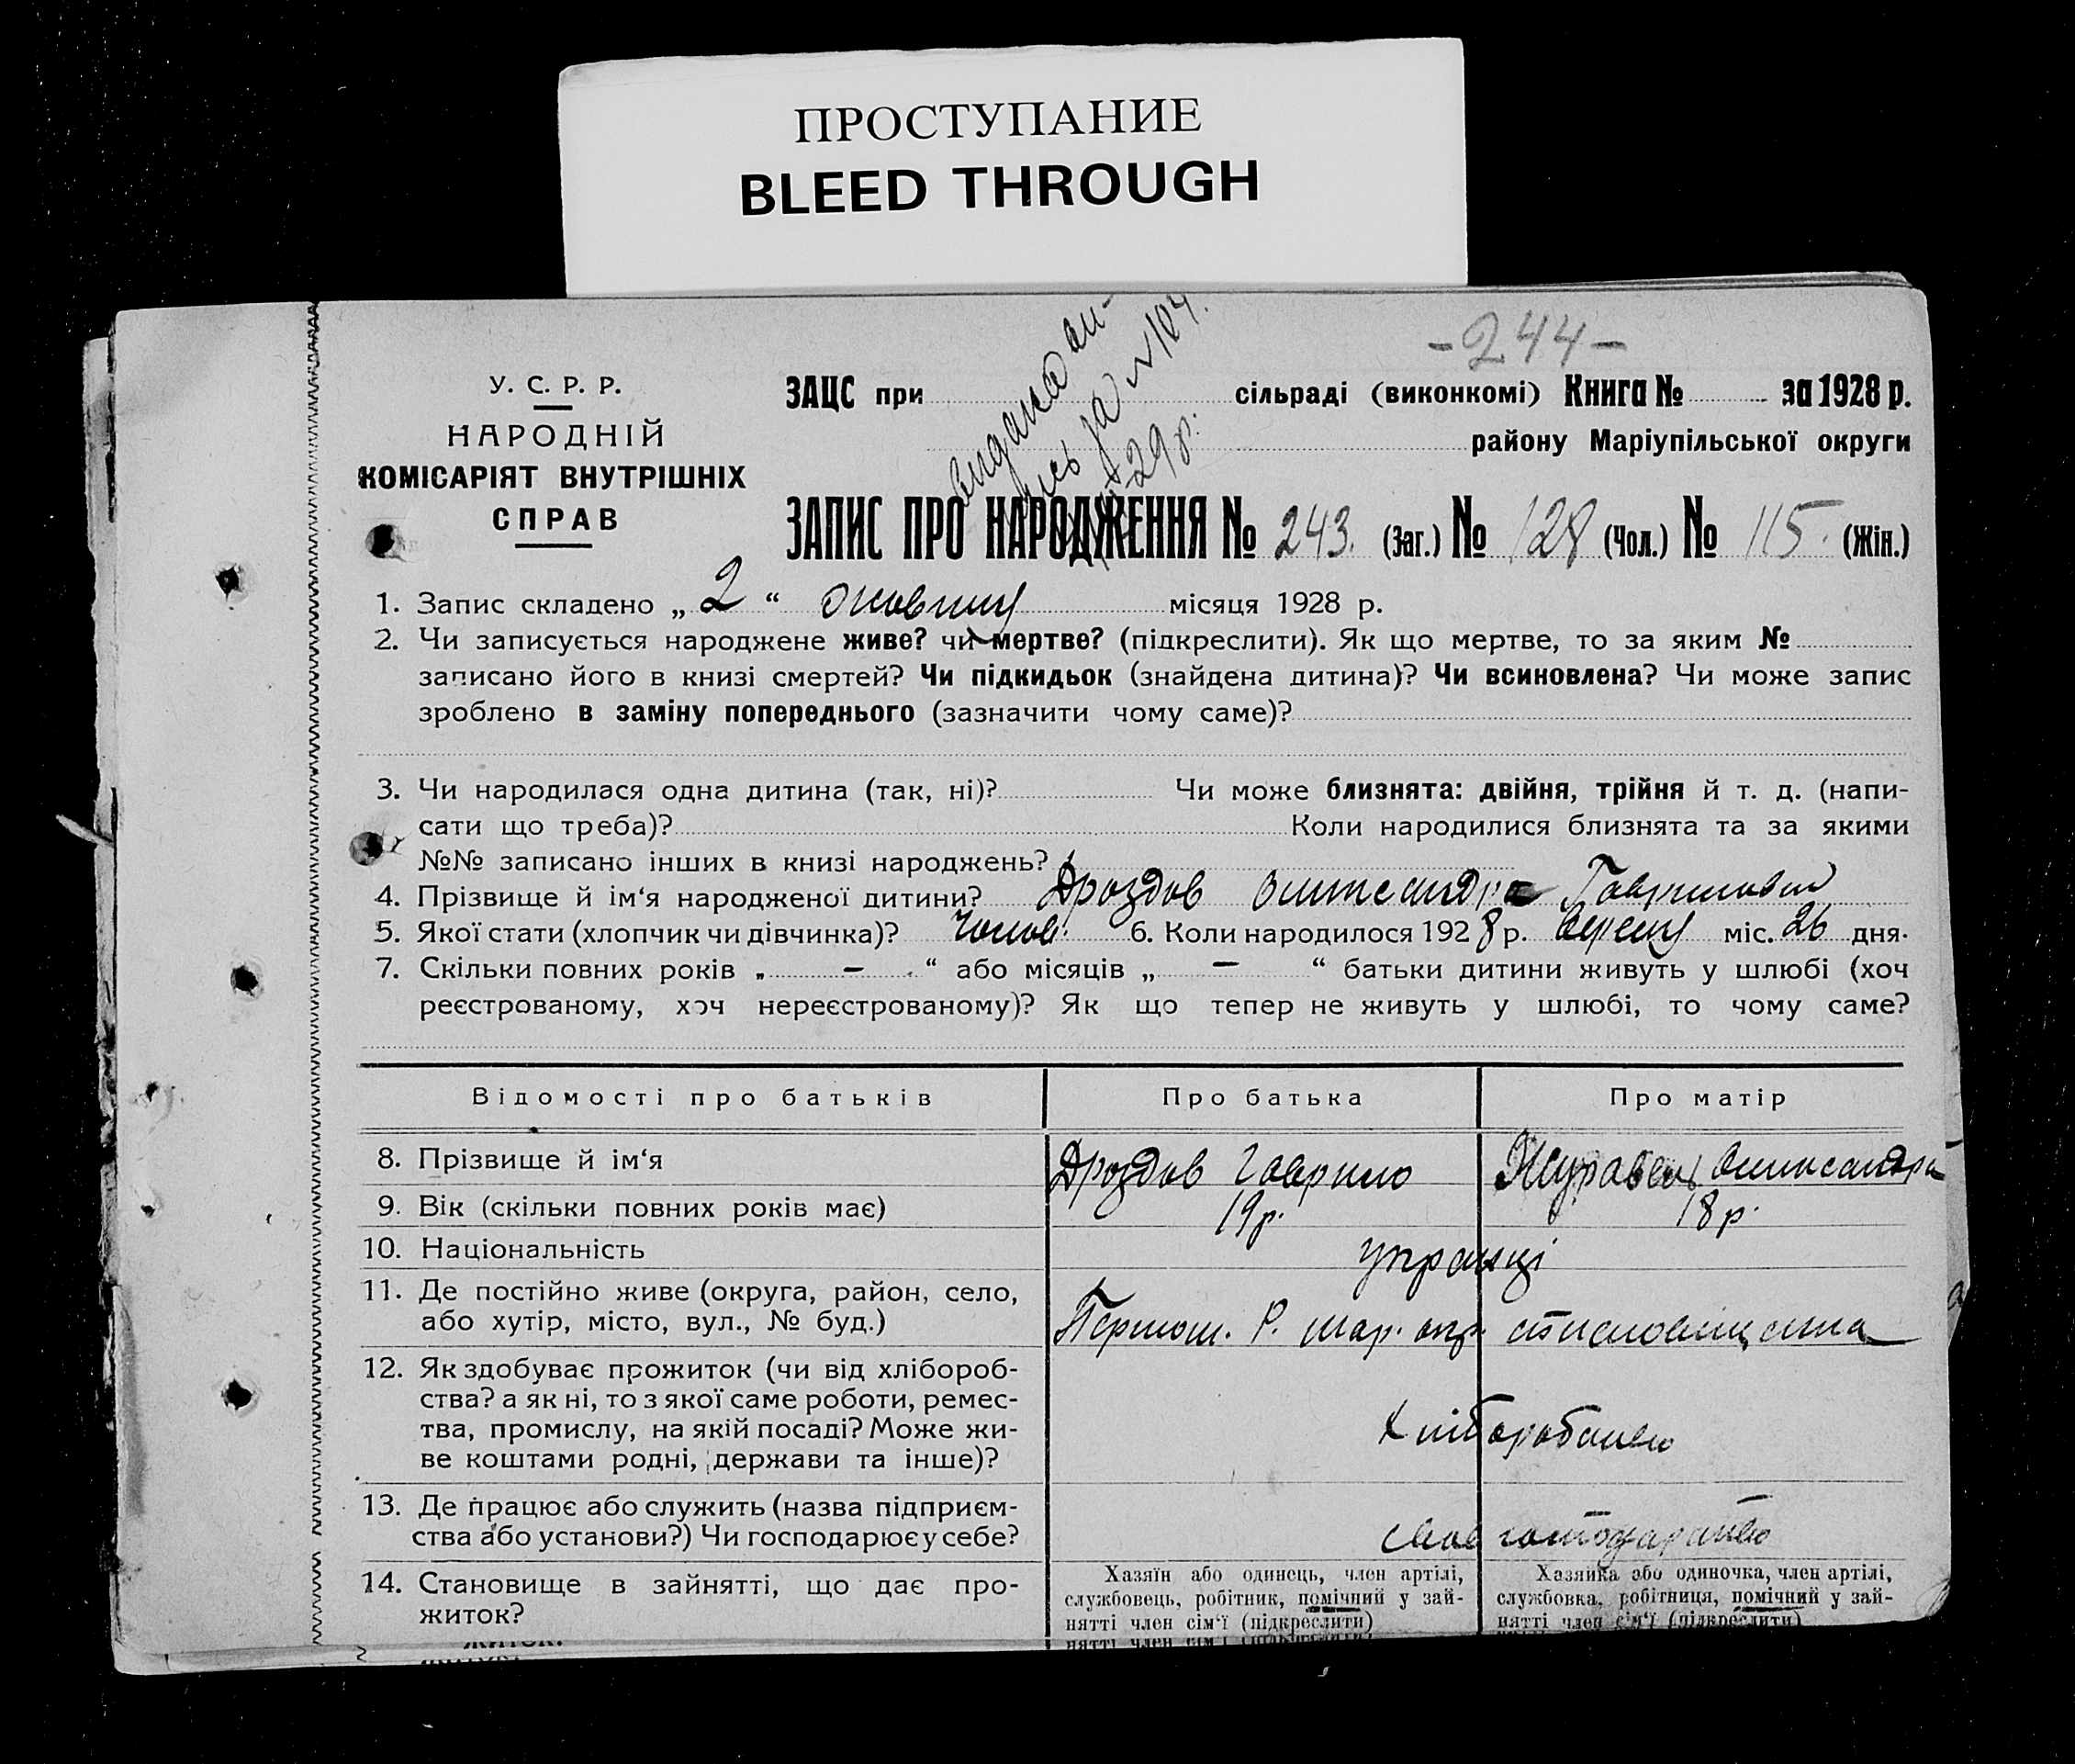 ПРОСТУПАНИЕ
BLEED THROUGH
-244-
У. С. Р. Р.
НАРОДНІЙ
КОМІСАРІЯТ ВНУТРІШНІХ
СПРАВ
ЗАЦС при сільраді (виконкомі) Книга № за 1928 р.
району Маріупільської округи
видана
за №104.
29 р.
ЗАПИС ПРО НАРОДЖЕННЯ № 243. (Заг.) № 128 (Чол.) № 115. (Жін.)
1. Запис складено „ 2 “ жовтня місяця 1928 р.
2. Чи записується народжене живе? чи мертве? (підкреслити). Як що мертве, то за яким №
записано його в книзі смертей? Чи підкидьок (знайдена дитина)? Чи всиновлена? Чи може запис
зроблено в заміну попереднього (зазначити чому саме)?
3. Чи народилася одна дитина (так, ні)? Чи може близнята: двійня, трійня й т. д. (напи-
сати що треба)? Коли народилися близнята та за якими
№№ записано інших в книзі народжень?
4. Прізвище й ім‘я народженої дитини? Дроздов Олександр Гаврилович
5. Якої стати (хлопчик чи дівчинка)? Чолов. 6. Коли народилося 1928 р. вересня міс. 26 дня.
7. Скільки повних років „ — “ або місяців „ — “ батьки дитини живуть у шлюбі (хоч
реєстрованому, хоч нереєстрованому)? Як що тепер не живуть у шлюбі, то чому саме?
Відомості про батьків Про батька Про матір
8. Прізвище й ім‘я Дроздов Гаврило Журавель Олександра
9. Вік (скільки повних років має) 19р. 18р.
10. Національність українці
11. Де постійно живе (округа, район, село,
або хутір, місто, вул., № буд.) Р. мар. окр.
12. Як здобуває прожиток (чи від хлібороб-
ства? а як ні, то з якої саме роботи, ремес-
тва, промислу, на якій посаді? Може жи-
ве коштами родні, держави та інше)?
13. Де працює або служить (назва підприєм-
ства або установи?) Чи господарює у себе? своє господарство
14. Становище в зайнятті, що дає про-
житок?
Хазяїн або одинець, член артілі,
службовець, робітник, помічний у зай-
нятті член сім‘ї (підкреслити)
Хазяйка або одиночка, член артілі,
службовка, робітниця, помічний у зай-
нятті член сім‘ї (підкреслити)